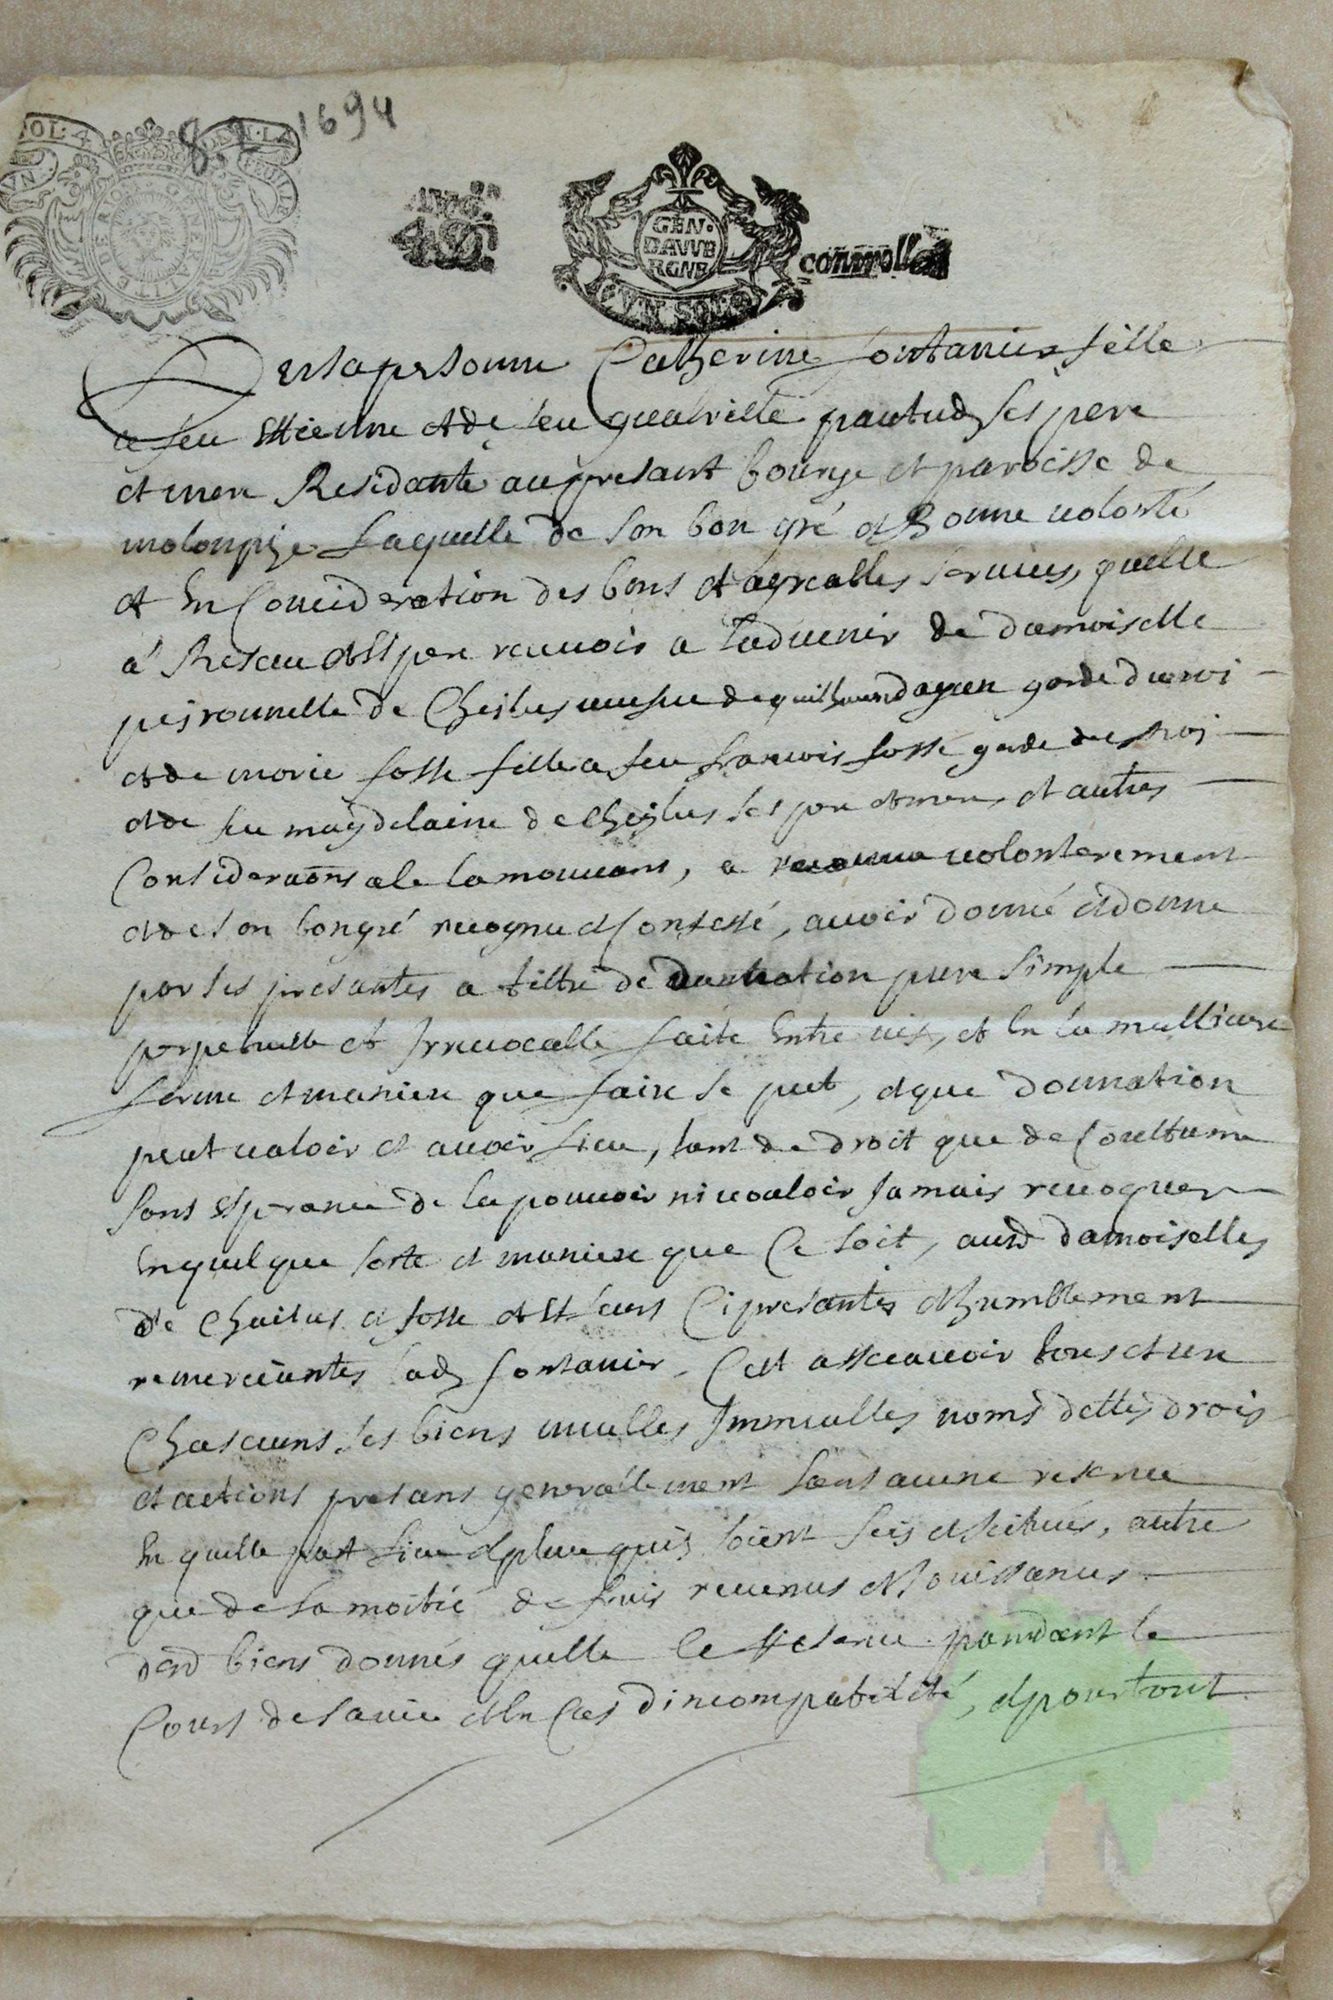 SOL·4
8,2 1694
DE RIOM GENERALITE
AVG.
49
GEN·
DAVVE
RGNE
VN SOL
controllé
En sa personne Catherine fontanier fille
a feu Estienne et de feu pautud ses pere
et mere Residante au presant bourge et paroisse de
molompize laquelle de son bon gré et Bonne volonté
et En Concideration des bons et agreables servises, quelle
a Reseu et Espere recevoir a ladvenir de damoiselle
peironnelle de Cheilus veufve de dagien garde du roi
et de marie fosse fille a feu francois fosse garde du Roi
et de feu magdelaine de Cheylus ses pere et mere et autres
Considerations a le la mouvans, a volonterement
et de son bongré recognu et Confessé, avoir donné et donne
par ses presantes a tiltre de donnation pure simple
perpetuelle et Irrevocable faite Entre vifz, et En la mellieure
forme et maniere que faire se peut, et que donnation
peut valoir et avoir lieu, tant de droit que de Coultume
sans Esperance de la pouvoir ni vouloir Jamais revoquer
En quelque sorte et maniere que Ce soit, ausd damoiselles
de Cheilus et fosse et Et leurs Ci presantes et humblement
remerciantes lad fontanier. C'est asscavoir tous et un
Chascuns ses biens meubles Immeubles noms debtes drois
et actions presans generallement sans aucune reserve
En quelle part lieu et place quis soient seis et scitués, autre
que de la moitié de fruis revenus et Jouissances
desd biens donnés quelle Ce Reserve pandant le
Cours de sa vie et En Cas dincompatibilité, et pour tout